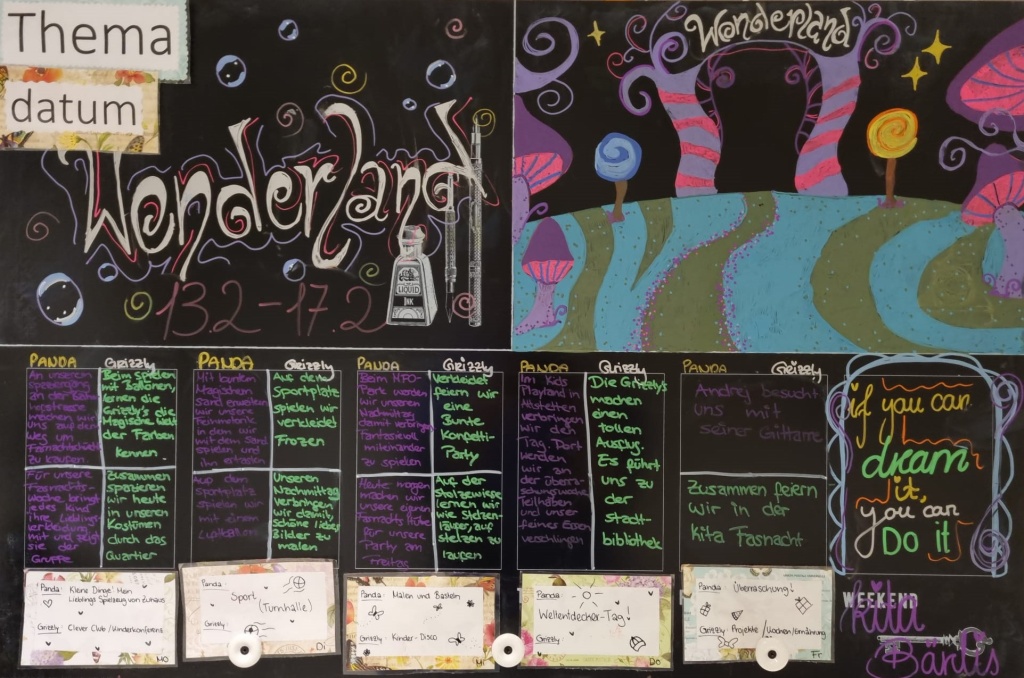 Thema
datum
Wonderland
LIQUID
INK
13.2 – 17.2
Wonderland
PANDA
Grizzly
An unserem
spaziergang
an der
machen wir
uns auf den
Weg um
Fasnachtschminke
zu kaufen
Beim spielen
mit Ballonen,
lernen die
Grizzly's die
Magische Welt
der Farben
kennen.
Für unsere
Fasnachts-
Woche bringt
jedes Kind
ihre Lieblings
verkleidung
mit und zeigt
sie der
Gruppe
Zusammen
spazieren
wir heute
in unseren
Kostümen
durch das
Quartier
PANDA
Grizzly
Mit buntem
Magischem
Sand erweitern
wir unsere
Feinmotorik
in dem wir
mit dem Sand
spielen und
ihn ertasten
Auf dem
Sportplatz
spielen wir
verkleidet
Frozen
Auf dem
sportplatz
spielen wir
mit einem
Luftballon
Unseren
Nachmittag
verbringen
wir damit,
schöne liebes
Bilder zu
malen
PANDA
Grizzly
Beim
Park werden
wir unseren
Nachmittag
damit verbringen
Fantasievoll
miteinander
zu spielen
Verkleidet
feiern wir
eine
Bunte
Konfetti-
Party
Heute morgen
machen wir
unsere eigenen
Fasnachts Hüte
für unsere
Party am
Freitag
Auf der
Stelzenwiese
lernen wir
wie Stelzen-
läufer, auf
stelzen zu
laufen
PANDA
Grizzly
Im Kids
Playland in
verbringen
wir den
Tag. Dort
werden
wir an
der
Teilhaben
und unser
feines Essen
verschlingen
Die Grizzly's
machen
einen
tollen
Ausflug.
Es führt
uns zu
der
stadt-
bibliothek
PANDA
Grizzly
Andrej besucht
uns mit
seiner Gittarre
Zusammen feiern
wir in der
kita Fasnacht
if you can
dream
it,
you can
Do it
WEEKEND
Kiki
Bärlis
Panda: Kleine Dinge! Mein
Lieblings Spielzeug von Zuhaus
Grizzly: Clever Club / Kinderkonferenz
Mo
Panda:
Sport
(Turnhalle)
Grizzly:
Di
Panda: Malen und Basteln
Grizzly: Kinder-Disco
Mi
Panda:
Weltentdecher-Tag!
Grizzly:
Do
Panda: Überraschung!
Grizzly: Projekte / Kochen / Ernährung
Fr